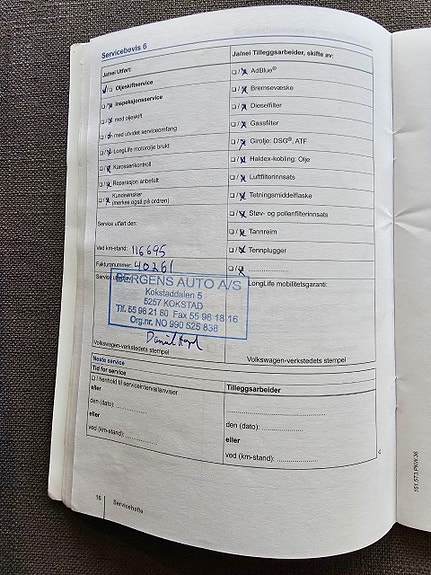 Servicebevis 6
Ja/nei Utført:
Oljeskiftservice
Inspeksjonsservice
med oljeskift
med utvidet serviceomfang
LongLife motorolje brukt
Karosserikontroll
Reparasjon anbefalt
Kundeønsker
(merkes også på ordren)
Service utført den:
Ved km-stand: 116695
Fakturanummer: 40261
Service utført av:
BERGENS AUTO A/S
Kokstaddalen 5
5257 KOKSTAD
Tlf. 55 98 21 80 Fax 55 98 18 16
Org.nr. NO 990 525 838
Volkswagen-verkstedets stempel
Ja/nei Tilleggsarbeider, skifte av:
AdBlue®
Bremsevæske
Dieselfilter
Gassfilter
Girolje: DSG®, ATF
Haldex-kobling: Olje
Luftfilterinnsats
Tetningsmiddelflaske
Støv- og pollenfilterinnsats
Tannreim
Tennplugger
LongLife mobilitetsgaranti:
Volkswagen-verkstedets stempel
Neste service
Tid for service
I henhold til serviceintervallanviser
eller
den (dato):
eller
ved (km-stand):
Tilleggsarbeider
den (dato):
eller
ved (km-stand):
16 Servicehefte